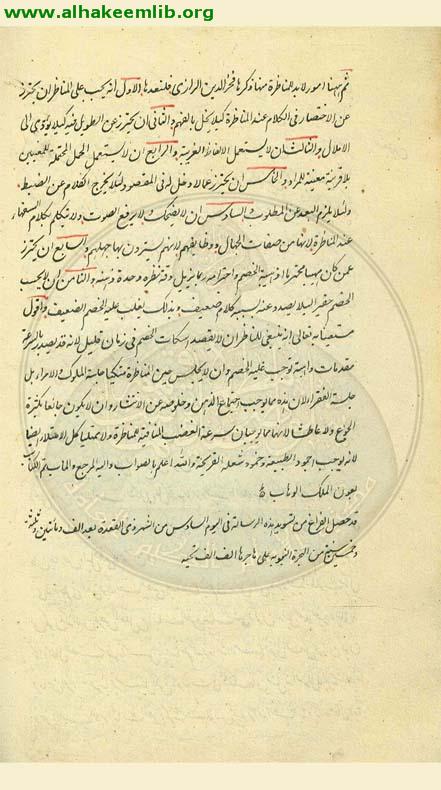 www.alhakeemlib.org
ثم ههنا امور لابد للمناظرة منها ذكرها فخر الدين الرازي فلنعدها الاول انه يجب على المناظر ان يحترز
عن الاختصار في الكلام عند المناظرة كيلا يخل بالفهم والثاني ان يحترز عن الطويل فيه كيلا يؤدي الى
الاملال والثالث ان لا يستعمل الالفاظ الغريبة والرابع ان لا يستعمل المجمل المحتملة للمعنيين
بلا قرينة معينة للمراد والخامس ان يحترز عما لا دخل له في المقصود ولئلا يخرج الكلام عن الضبط
ولئلا يلزم البعد عن المطلوب والسادس ان لا يضحك ولا يرفع الصوت ولا يتكلم بكلام السفهاء
عند المناظرة لانها من صفات الجهال ووظايفهم لانهم يسترون بها جهلهم والسابع ان يحترز
عمن كان مهيبا محترما اذ هيبة الخصم واحترامه ربما يزيل دقة نظره وحدة ذهنه والثامن ان لا يحسب
الخصم حقيرا لئلا يصدر عنه بسببه كلام ضعيف وبذلك يغلب عليه الخصم الضعيف واقول
مستعينا به تعالى انه ينبغي للمناظر ان لا يقصد اسكات الخصم في زمان قليل لانه قد يصدر بالسرعة
مقدمات واهية توجب غلبة الخصم وان لا يجلس حين المناظرة متكيا جلسة الملوك والامراء بل
جلسة الفقراء لان هذه مما يوجب اجتماع الذهن وخلوصه عن الانتشار وان لا يكون جائعا بكثرة
الجوع ولا عاطشا لانهما يوجبان سرعة الغضب المنافية للمناظرة ولا ممتليا كل الامتلاء ايضا
لانه يوجب جمود الطبيعة وخمود شعلة القريحة والله اعلم بالصواب واليه المرجع والمآب تم الكتاب
بعون الملك الوهاب
قد حصل الفراغ من تسويد هذه الرسالة في اليوم السادس من الشهر ذي القعدة بعد الف ومائتين وثلثة
وخمسين من الهجرة النبوية على هاجرها الف الف تحية